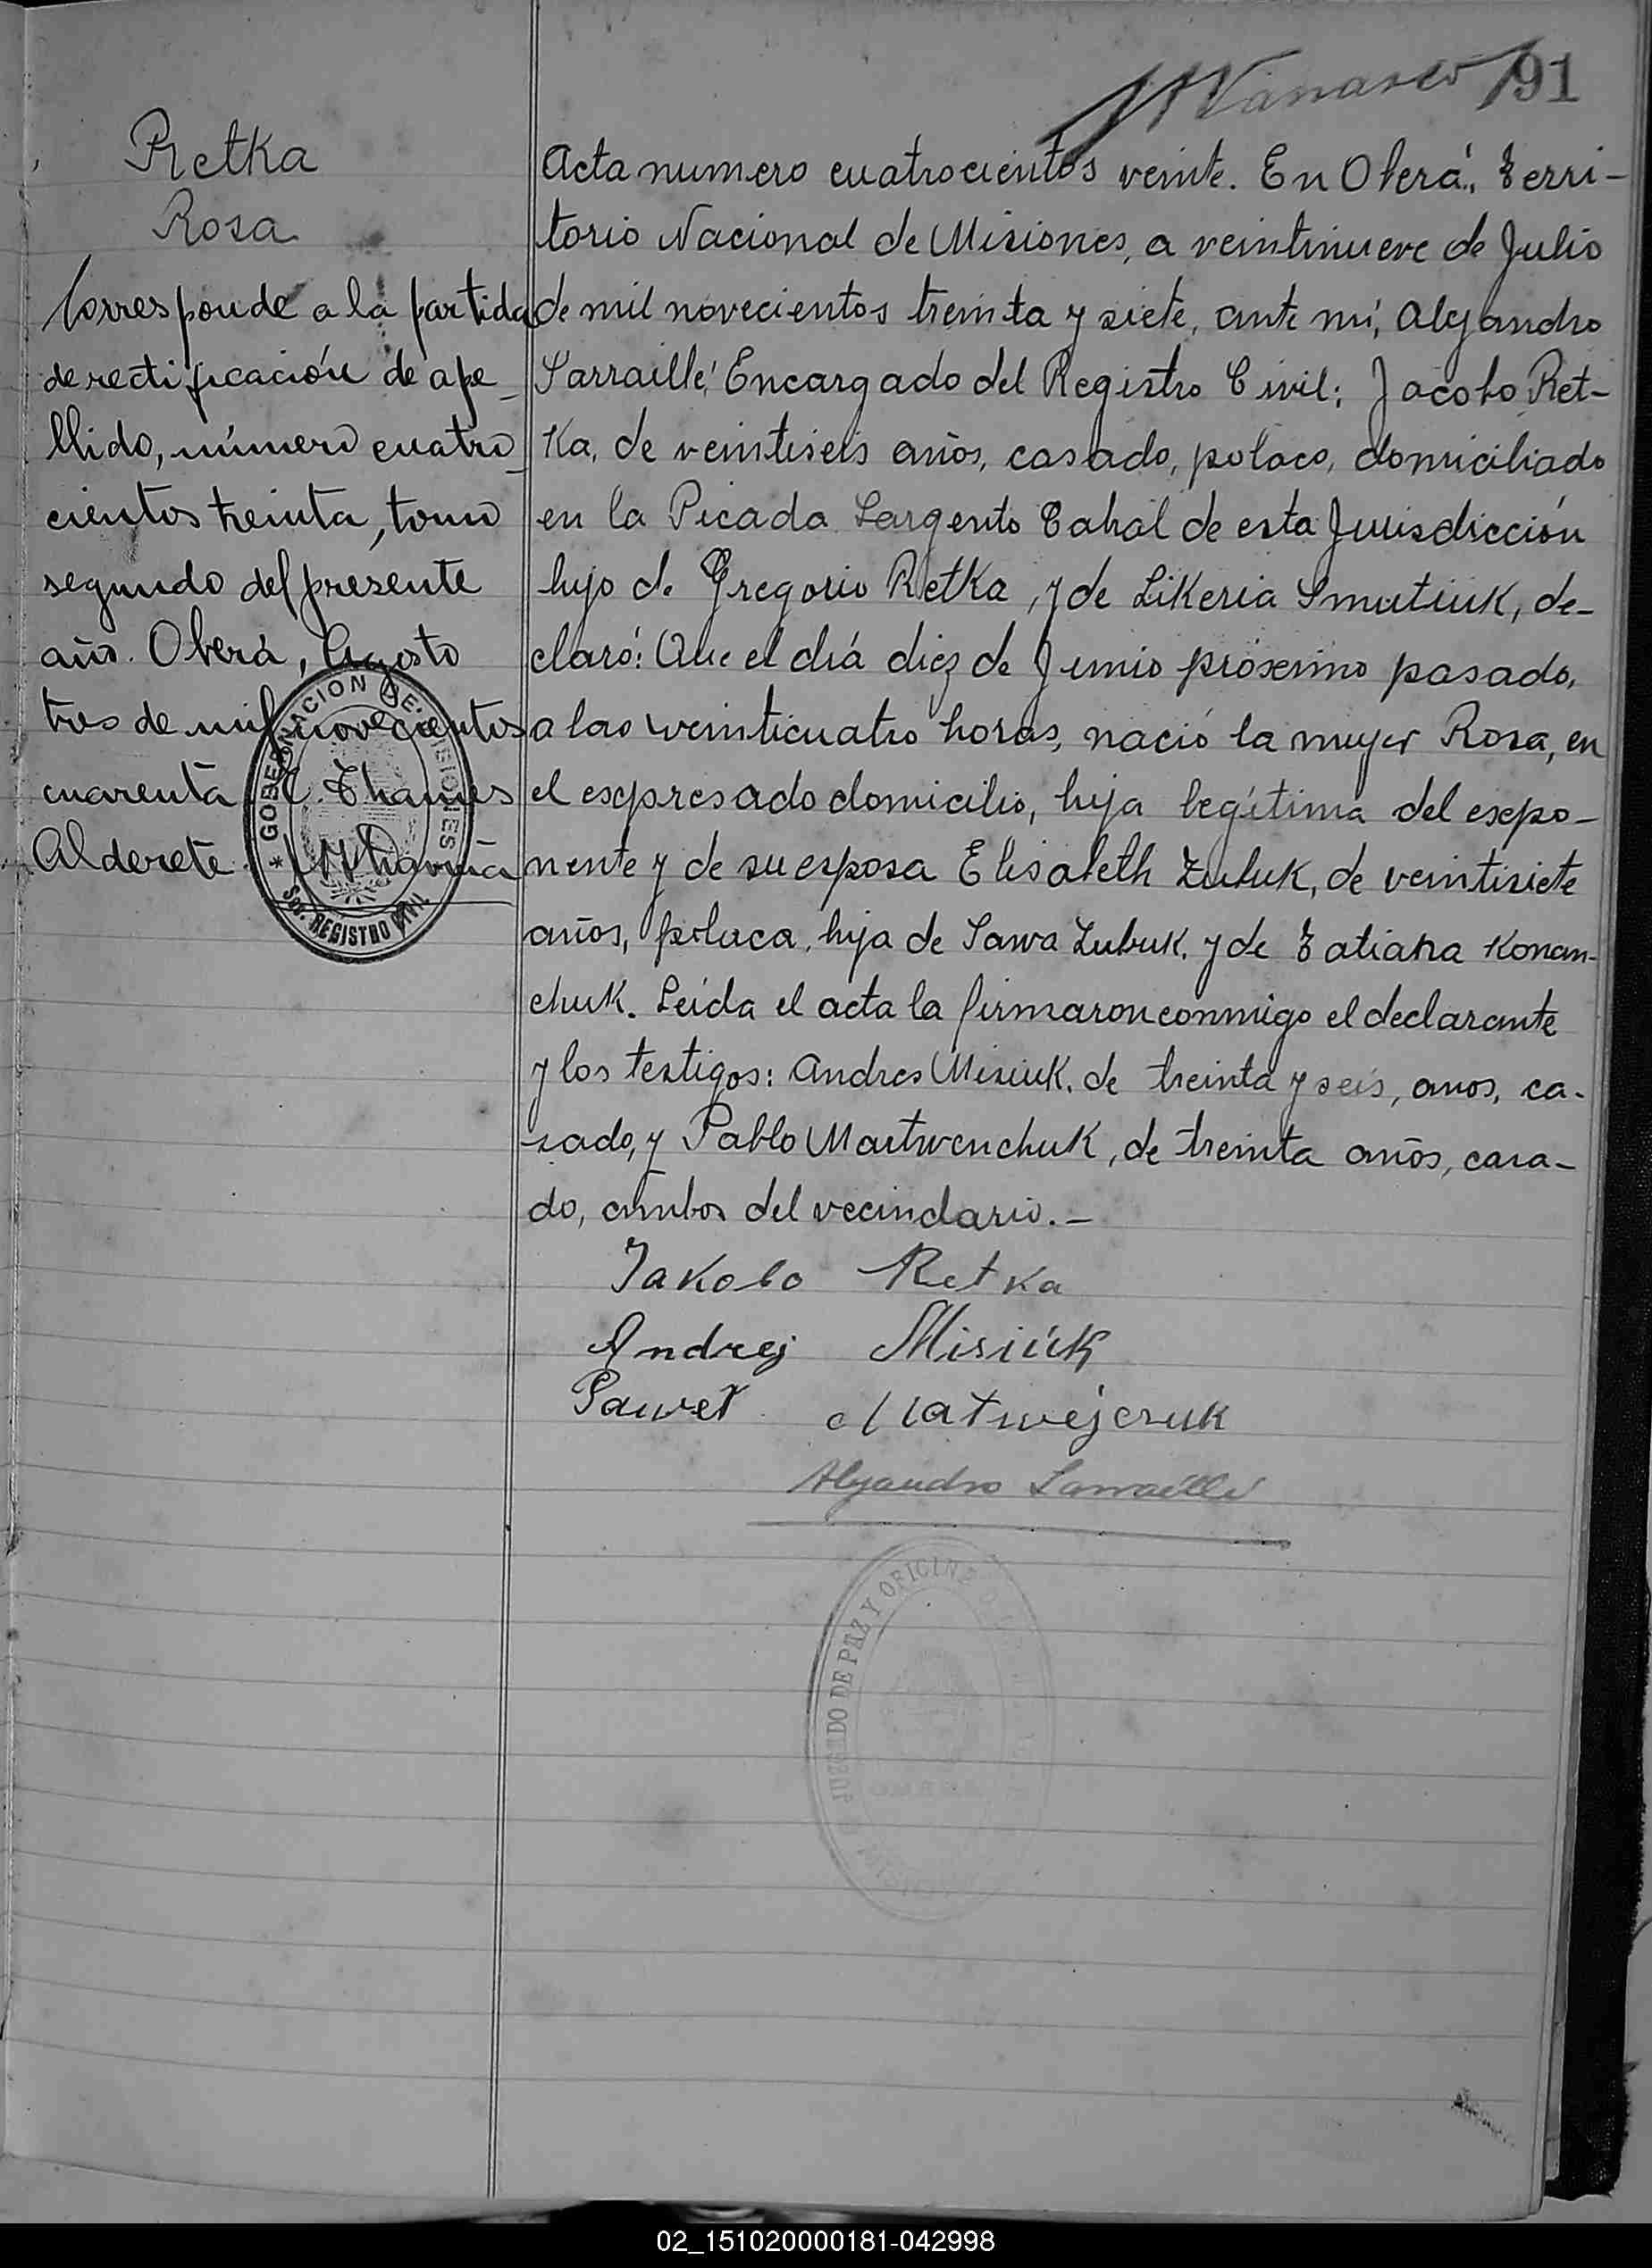 91
Retka
Rosa
Corresponde a la partida
de rectificación de ape-
llido, número cuatro-
cientos treinta, tomo
segundo del presente
año. Oberá, Agosto
tres de mil novecientos
cuarenta. C. Thames
Alderete.
GOBERNACION DE MISIONES
* Sec. REGISTRO CIVIL
Acta numero cuatrocientos veinte. En Oberá, Terri-
torio Nacional de Misiones, a veintinueve de Julio
de mil novecientos treinta y siete, ante mí, Alejandro
Sarraillé, Encargado del Registro Civil; Jacobo Ret-
ka, de veintiseis años, casado, polaco, domiciliado
en la Picada Sargento Cabral de esta Jurisdicción
hijo de Gregorio Retka, y de Likeria Smutiuk, de-
claró: Que el día diez de Junio próximo pasado,
a las veinticuatro horas, nació la mujer Rosa, en
el expresado domicilio, hija legítima del expo-
nente y de su esposa Elisabeth Zubuk, de veintisiete
años, polaca, hija de Sawa Zubuk, y de Tatiana Konan-
chuk. Leida el acta la firmaron conmigo el declarante
y los testigos: Andres Misiuk, de treinta y seis, anos, ca-
sado, y Pablo Martwenchuk, de treinta años, casa-
do, ambos del vecindario.-
Jakobo Retka
Andrej Misiúk
Paweł Matwejczuk
Alejandro Sarraillé
JUZGADO DE PAZ Y OFICINA
02_151020000181-042998